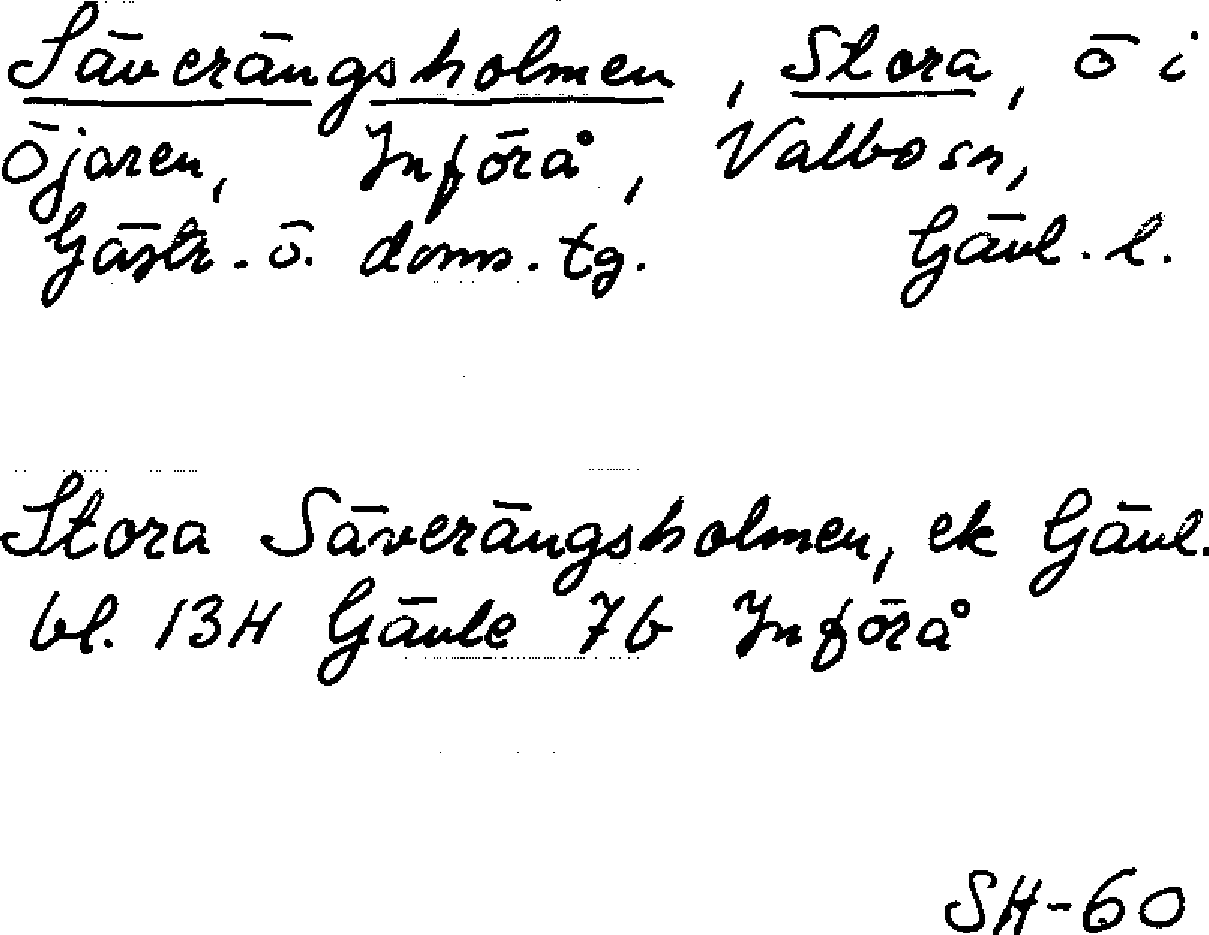 Säverängsholmen, Stora, ö i
Öjaren, Införå, Valbo sn,
Gästr. ö. doms. tg. Gävl. l.
Stora Säverängsholmen, ek Gävl.
bl. 13H Gävle 7b Införå
SH-60